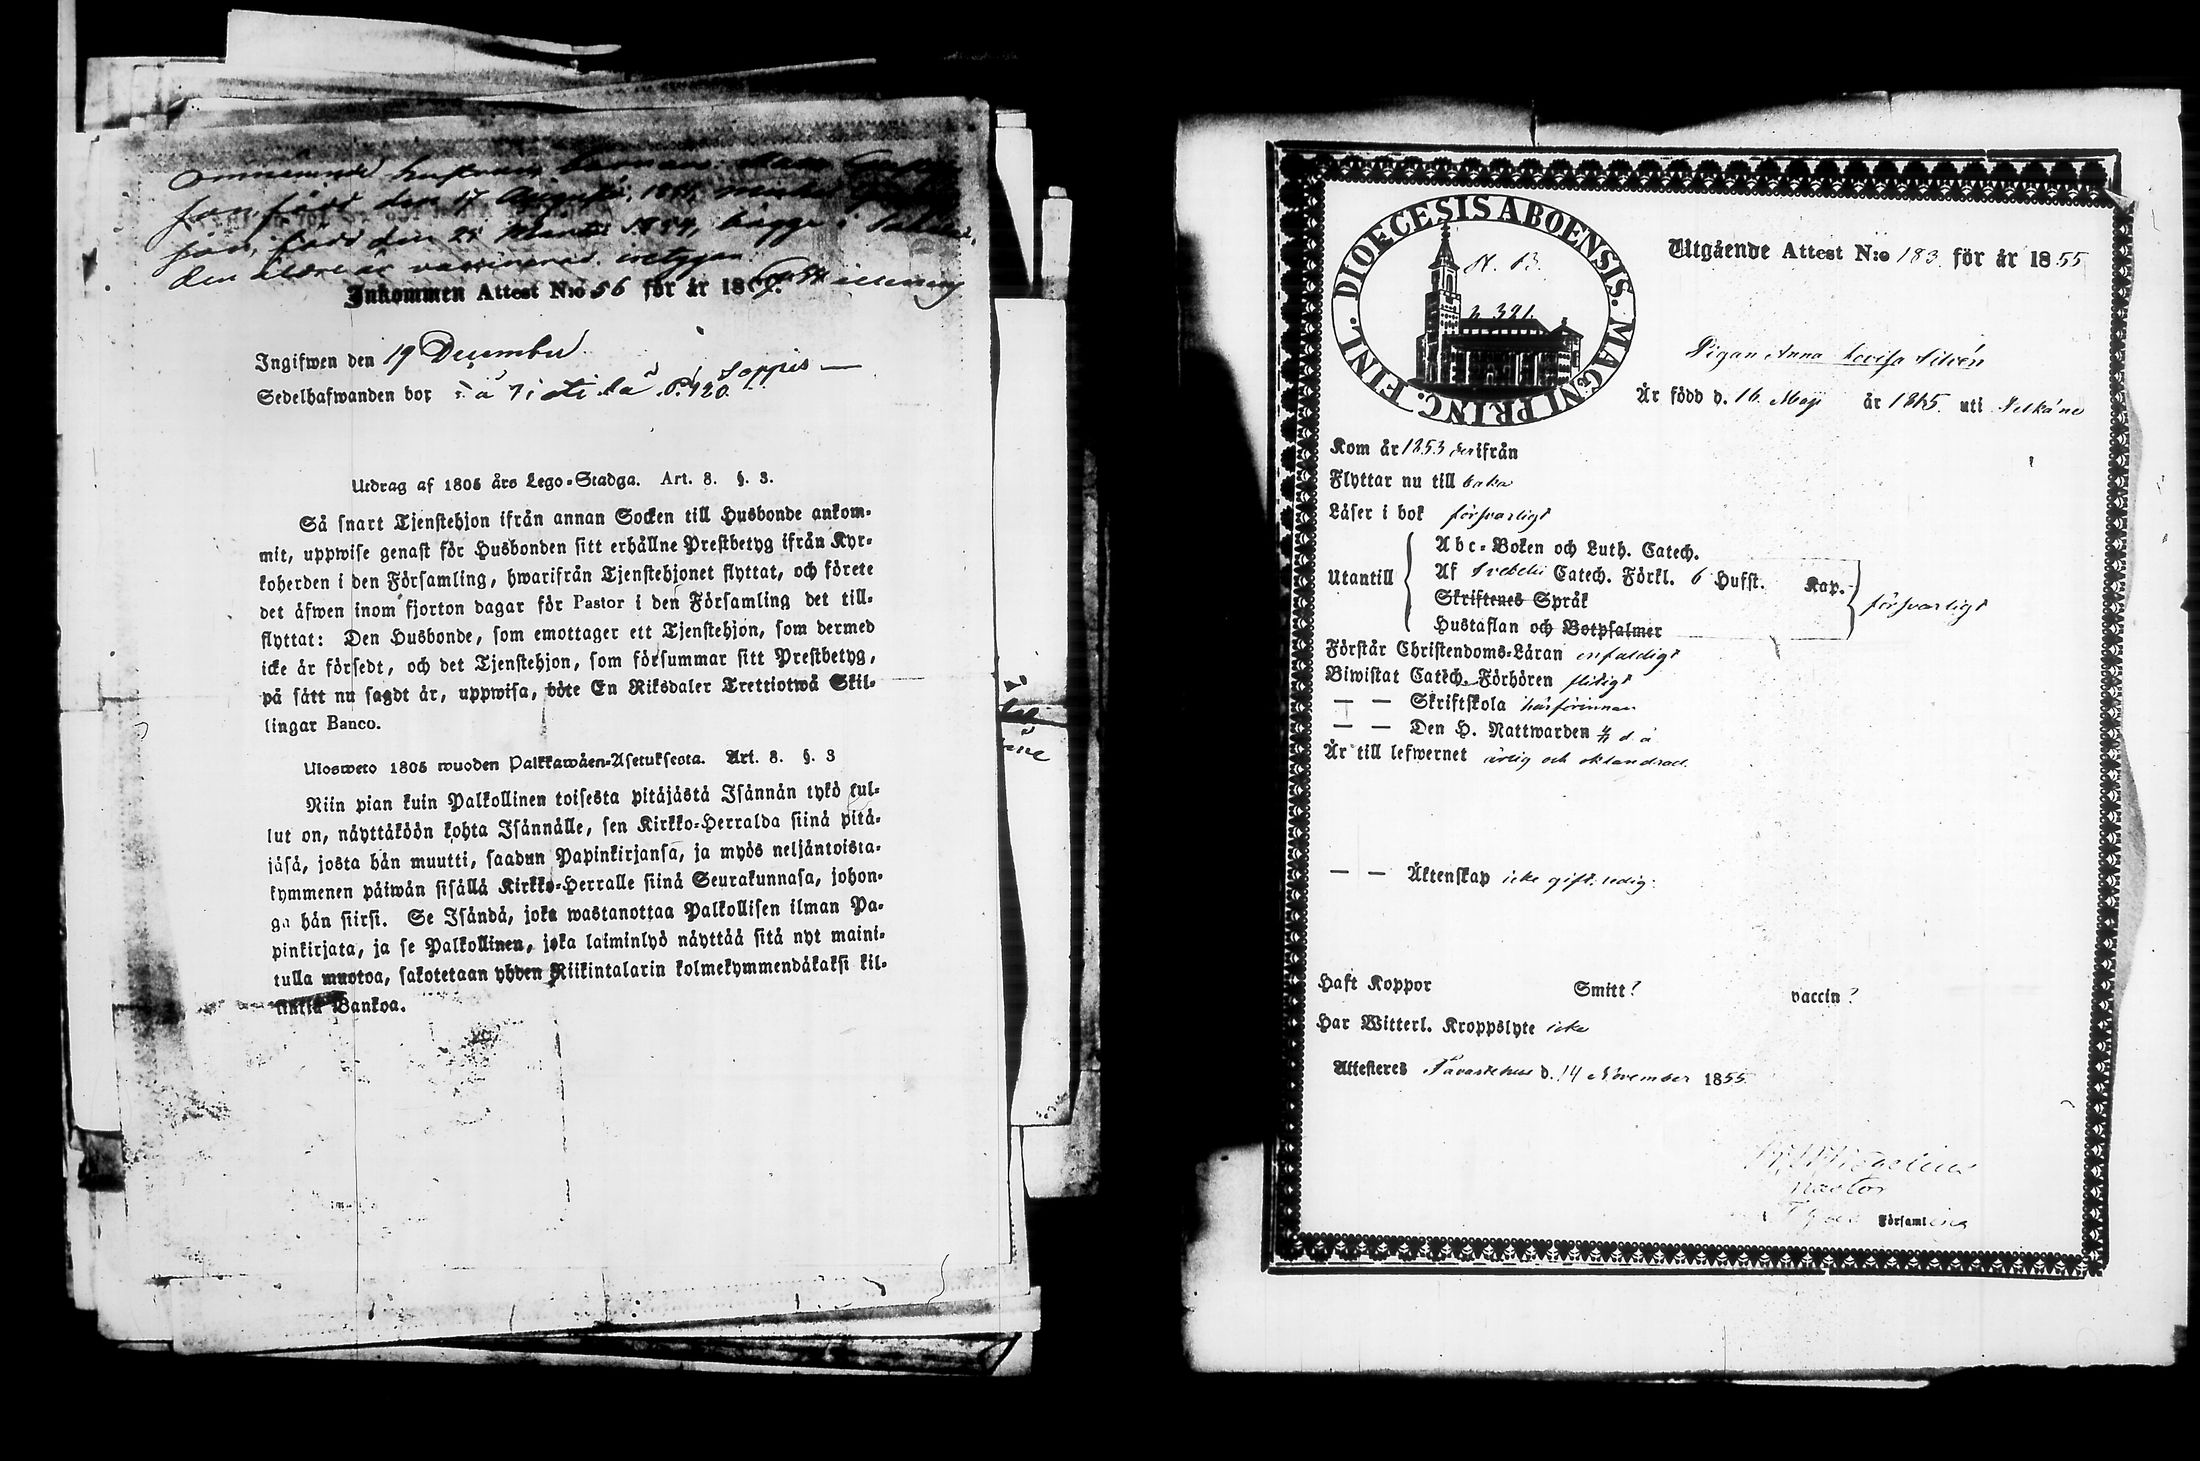 den 17 Augusti
född den 21 Martii 1854, bägge i
den äldre är vaccinerad, intygar
Inkommen Attest N:o 56 för år 18
Ingifwen den 19 December
Sedelhafwanden bor P. 420. Soppis
Utdrag af 1805 års Lego-Stadga. Art. 8. §. 3.
Så snart Tjenstehjon ifrån annan Socken till Husbonde ankom-
mit, uppwise genast för Husbonden sitt erhållne Prestbetyg ifrån Kyr-
koherden i den Församling, hwarifrån Tjenstehjonet flyttat, och förete
det äfwen inom fjorton dagar för Pastor i den Församling det till-
flyttat: Den Husbonde, som emottager ett Tjenstehjon, som dermed
icke är försedt, och det Tjenstehjon, som försummar sitt Prestbetyg,
på sätt nu sagdt är, uppwisa, böte En Riksdaler Trettiotwå Skil-
lingar Banco.
Ulosweto 1805 wuoden Palkkawäen-Asetuksesta. Art. 8. §. 3
Niin pian kuin Palkollinen toisesta pitäjästä Isännän tykö tul-
lut on, näyttäköön kohta Isännälle, sen Kirkko-Herralda siinä pitä-
jäsä, josta hän muutti, saadun Papinkirjansa, ja myös neljäntoista-
kymmenen päiwän sisällä Kirkko-Herralle siinä Seurakunnasa, johon-
ga hän siirsi. Se Isändä, joka wastanottaa Palkollisen ilman Pa-
pinkirjata, ja se Palkollinen, joka laiminlyö näyttää sitä nyt maini-
tulla muotoa, sakotetaan yhden Riikintalarin kolmekymmendäkaksi kil-
linkiä Bankoa.
DIOECESIS ABOENSIS. MAGNI PRINC. FINL.
p. 391.
Utgående Attest N:o 183 för år 1855
Pigan Anna Lovisa Silvén
Är född d. 16 Maji år 1815 uti Pelkäne
Kom år 1853 derifrån
Flyttar nu till baka
Läser i bok försvarligt
Utantill
Abc-Boken och Luth. Catech.
Af Svebelii Catech. Förkl. 6 Hufst. Kap.
Skriftenes Språk
Hustaflan och Botpsalmer
försvarligt
Förstår Christendoms-Läran enfaldigt
Biwistat Catech. Förhören flitigt
— — Skriftskola härförinnan
— — Den H. Nattwarden d. å
Är till lefwernet ärlig och oklandrad
— — Äktenskap icke gift. ledig.
Haft Koppor Smitt? vaccin?
Har Witterl. Kroppslyte icke
Attesteres Tavastehus d. 14 November 1855
Pastor
Församling